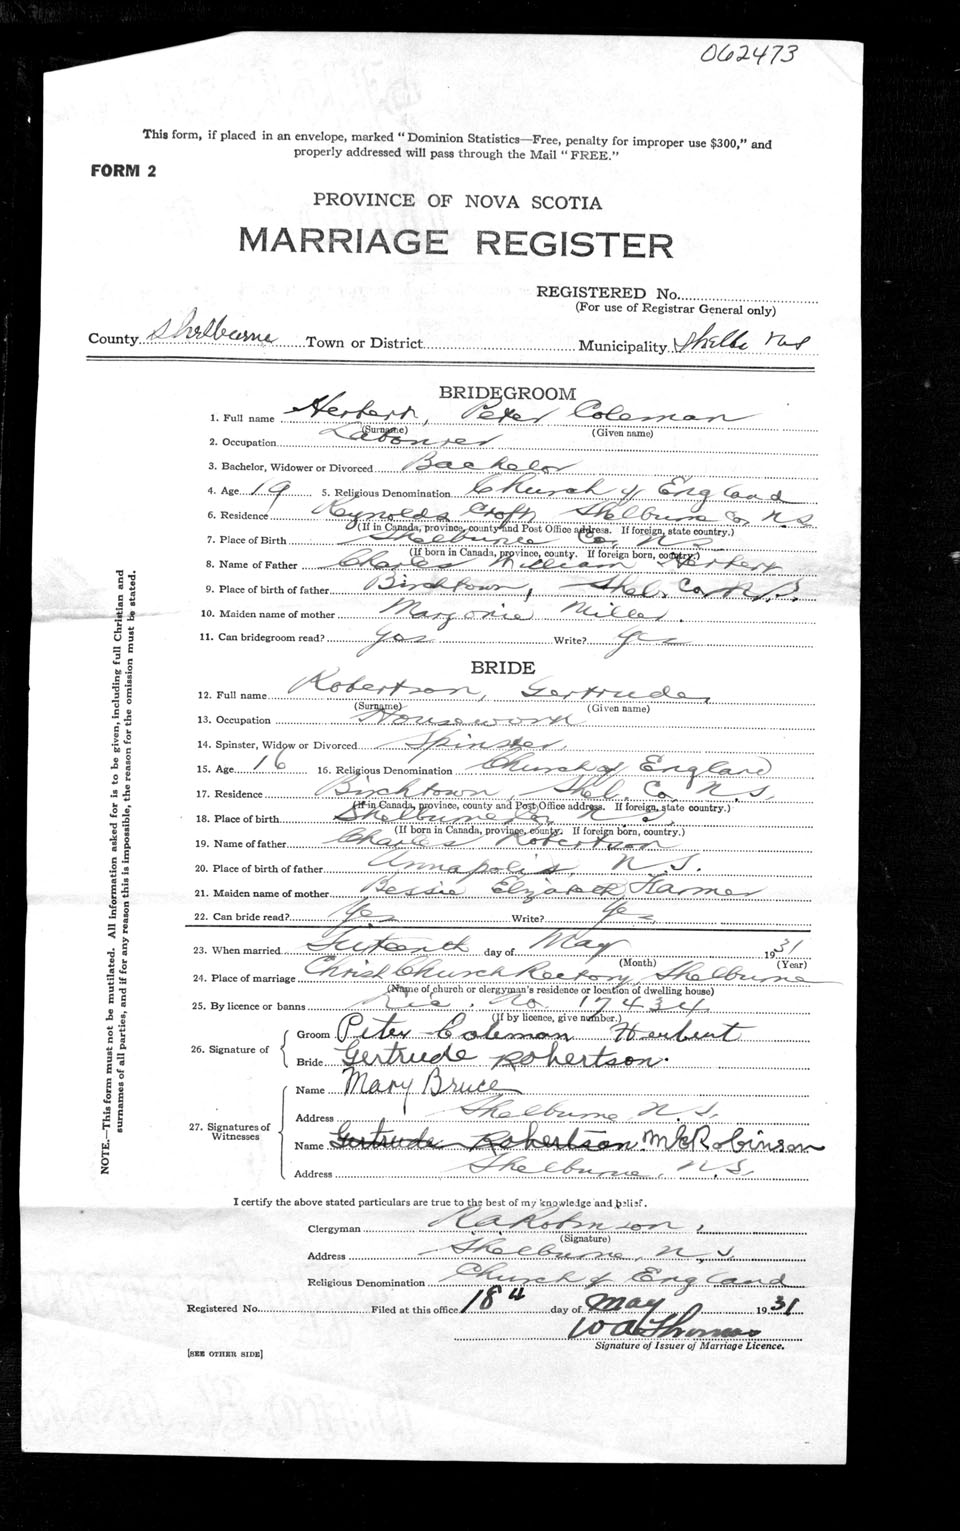 062473
This form, if placed in an envelope, marked "Dominion Statistics—Free, penalty for improper use $300," and
properly addressed will pass through the Mail "FREE."
FORM 2
PROVINCE OF NOVA SCOTIA
MARRIAGE REGISTER
REGISTERED No.
(For use of Registrar General only)
County Shelburne Town or District Municipality Shelbe
BRIDEGROOM
1. Full name Herbert, Peter Coleman
(Surname) (Given name)
2. Occupation Labourer
3. Bachelor, Widower or Divorced Bachelor
4. Age 19 5. Religious Denomination Church of England
6. Residence Reynolds Croft Shelburne Co, N.S.
(If in Canada, province, county and Post Office address. If foreign, state country.)
7. Place of Birth Shelburne Co, N.S.
(If born in Canada, province, county. If foreign born, country.)
8. Name of Father Charles William Herbert
9. Place of birth of father Birchtown, Shel. Co. N.S.
10. Maiden name of mother Marjorie Miller.
11. Can bridegroom read? yes Write? yes
BRIDE
12. Full name Robertson, Gertrude,
(Surname) (Given name)
13. Occupation Housework
14. Spinster, Widow or Divorced Spinster.
15. Age 16 16. Religious Denomination Church of England
17. Residence Birchtown, Shel. Co. N.S.
(If in Canada, province, county and Post Office address. If foreign, state country.)
18. Place of birth Shelburne Co, N.S.
(If born in Canada, province, county. If foreign born, country.)
19. Name of father Charles Robertson
20. Place of birth of father Annapolis, N.S.
21. Maiden name of mother Bessie Elizabeth Farmer
22. Can bride read? Yes Write? Yes
23. When married Sixteenth day of May 1931
(Month) (Year)
24. Place of marriage Christ Church Rectory, Shelburne
(Name of church or clergyman's residence or location of dwelling house)
25. By licence or banns Lic. No. 17434
(If by licence, give number.)
26. Signature of
Groom Peter Coleman Herbert
Bride Gertrude Robertson.
27. Signatures of Witnesses
Name Mary Bruce
Address Shelburne N.S.
Name Gertrude Robertson. M K Robinson
Address Shelburne, N.S.
I certify the above stated particulars are true to the best of my knowledge and belief.
Clergyman Robinson.
(Signature)
Address Shelburne, N.S.
Religious Denomination Church of England
Registered No. Filed at this office 18" day of May 1931
W A Thomas
Signature of Issuer of Marriage Licence.
[SEE OTHER SIDE]
NOTE.—This form must not be mutilated. All information asked for is to be given, including full Christian and
surnames of all parties, and if for any reason this is impossible, the reason for the omission must be stated.